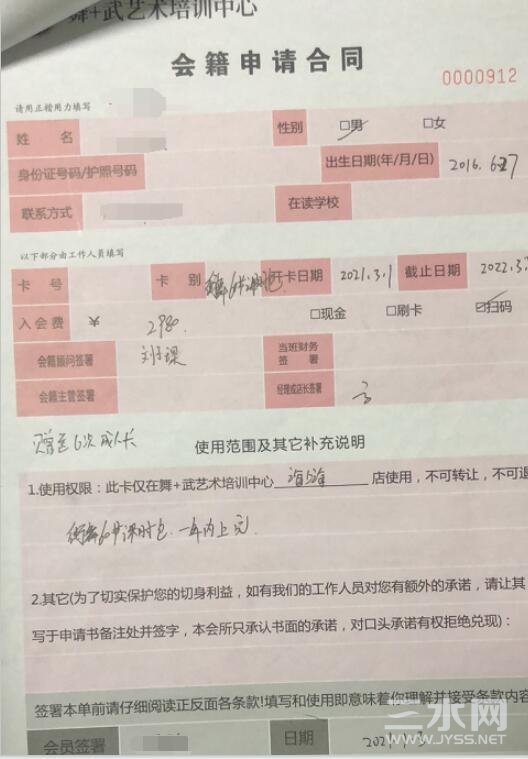 舞+武艺术培训中心
会籍申请合同
0000912
请用正楷用力填写
姓 名 性别 □男 □女
身份证号码/护照号码 出生日期(年/月/日) 2016.
联系方式 在读学校
以下部分由工作人员填写
卡 号 卡 别 开卡日期 2021.3.1 截止日期 2022.3.
入会费 ¥ 2980. □现金 □刷卡 ☑扫码
会籍顾问签署 当班财务签署
会籍主管签署 经理或店长签署
赠送6次成人卡
使用范围及其它补充说明
1.使用权限：此卡仅在舞+武艺术培训中心 店使用，不可转让，不可退
街舞60节课时包.一年内上完.
2.其它(为了切实保护您的切身利益，如有我们的工作人员对您有额外的承诺，请让其
写于申请书备注处并签字，本会所只承认书面的承诺，对口头承诺有权拒绝兑现)：
签署本单前请仔细阅读正反面各条款!填写和使用即意味着你理解并接受条款内容
会员签署 日期 2021.
三水网
WWW.JYSS.NET